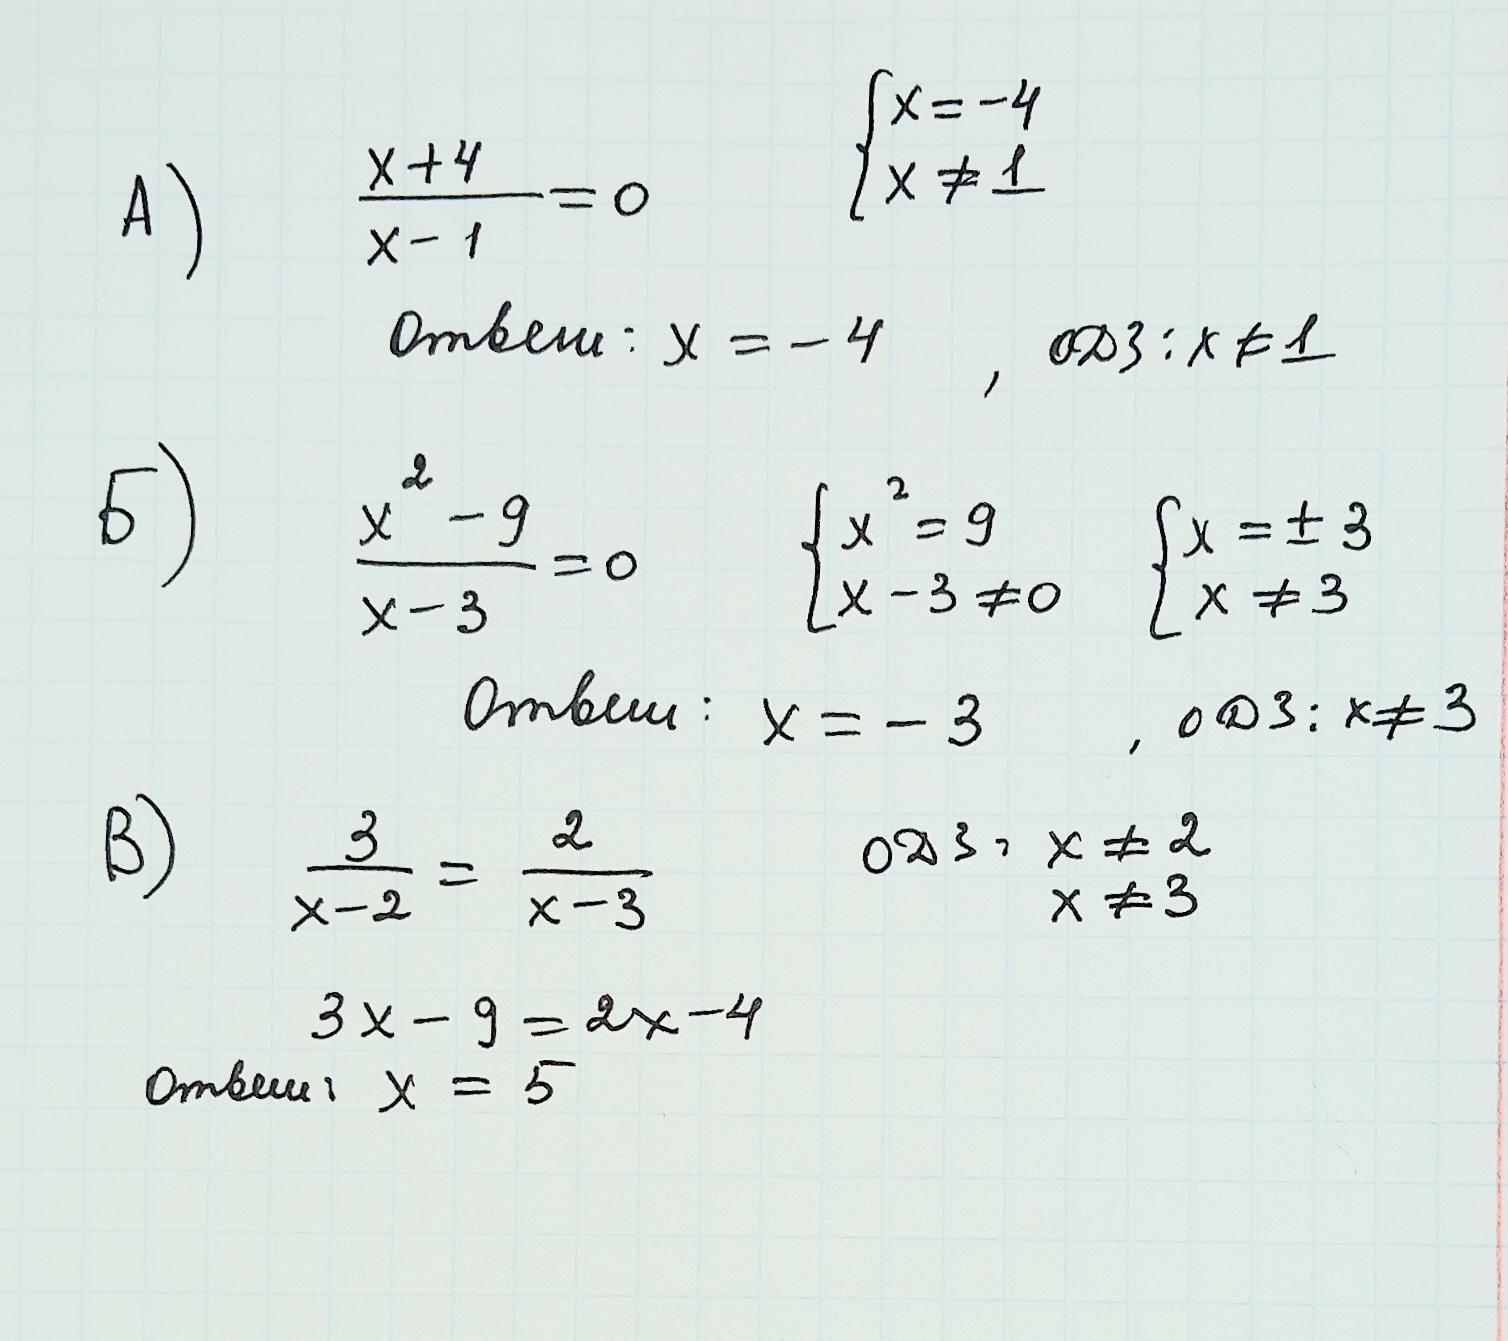 А) (x+4)/(x-1) = 0 { x = -4
x ≠ 1
Ответ: x = -4 , ОДЗ: x ≠ 1
Б) (x² - 9)/(x - 3) = 0 { x² = 9 { x = ± 3
x - 3 ≠ 0 x ≠ 3
Ответ: x = -3 , ОДЗ: x ≠ 3
В) 3/(x-2) = 2/(x-3) ОДЗ: x ≠ 2
x ≠ 3
3x - 9 = 2x - 4
Ответ: x = 5